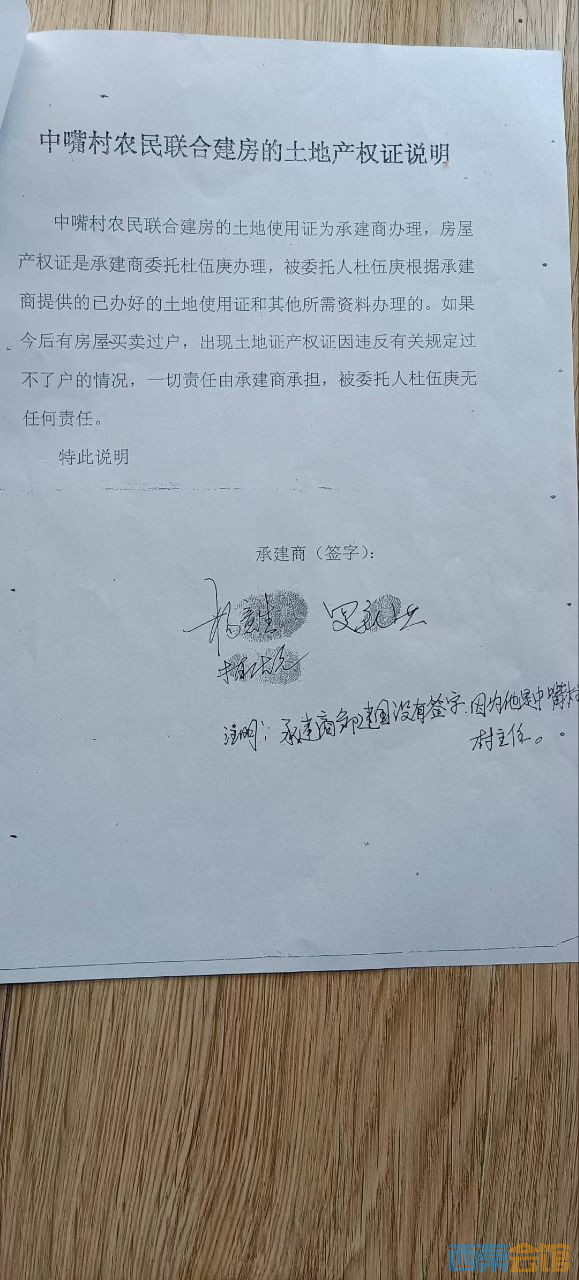 中嘴村农民联合建房的土地产权证说明
中嘴村农民联合建房的土地使用证为承建商办理，房屋
产权证是承建商委托杜伍庚办理，被委托人杜伍庚根据承建
商提供的已办好的土地使用证和其他所需资料办理的。如果
今后有房屋买卖过户，出现土地证产权证因违反有关规定过
不了户的情况，一切责任由承建商承担，被委托人杜伍庚无
任何责任。
特此说明
承建商（签字）：
注明：承建商 建国没有签字.因为他是中嘴村
村主任。
西秦会馆